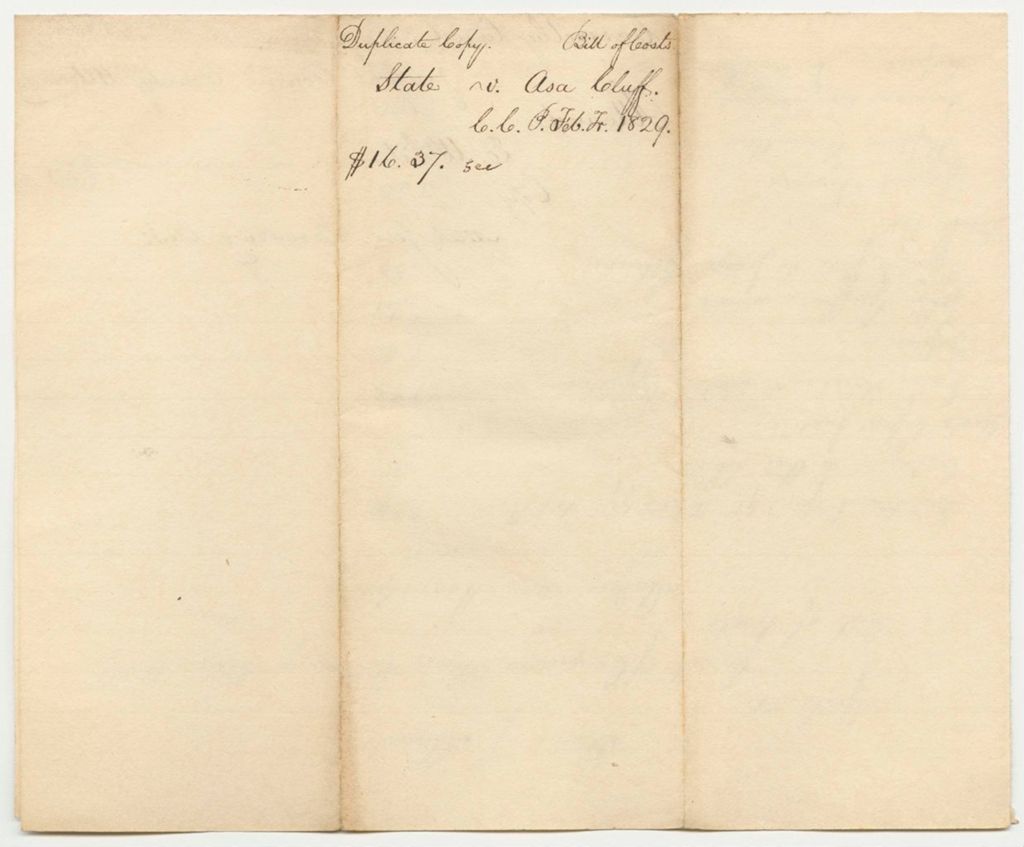 Duplicate Copy. Bill of Costs
State v. Asa Cluff.
C. C. P. Feb. Tr. 1829.
$16.37.